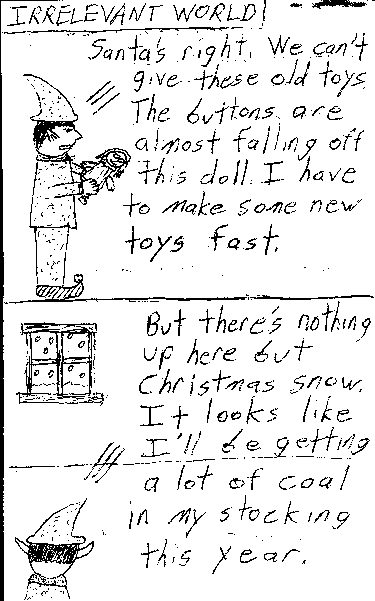 IRRELEVANT WORLD
Santa's right. We can't
give these old toys.
The buttons are
almost falling off
this doll. I have
to make some new
toys fast.
But there's nothing
up here but
Christmas snow.
It looks like
I'll be getting
a lot of coal
in my stocking
this year.